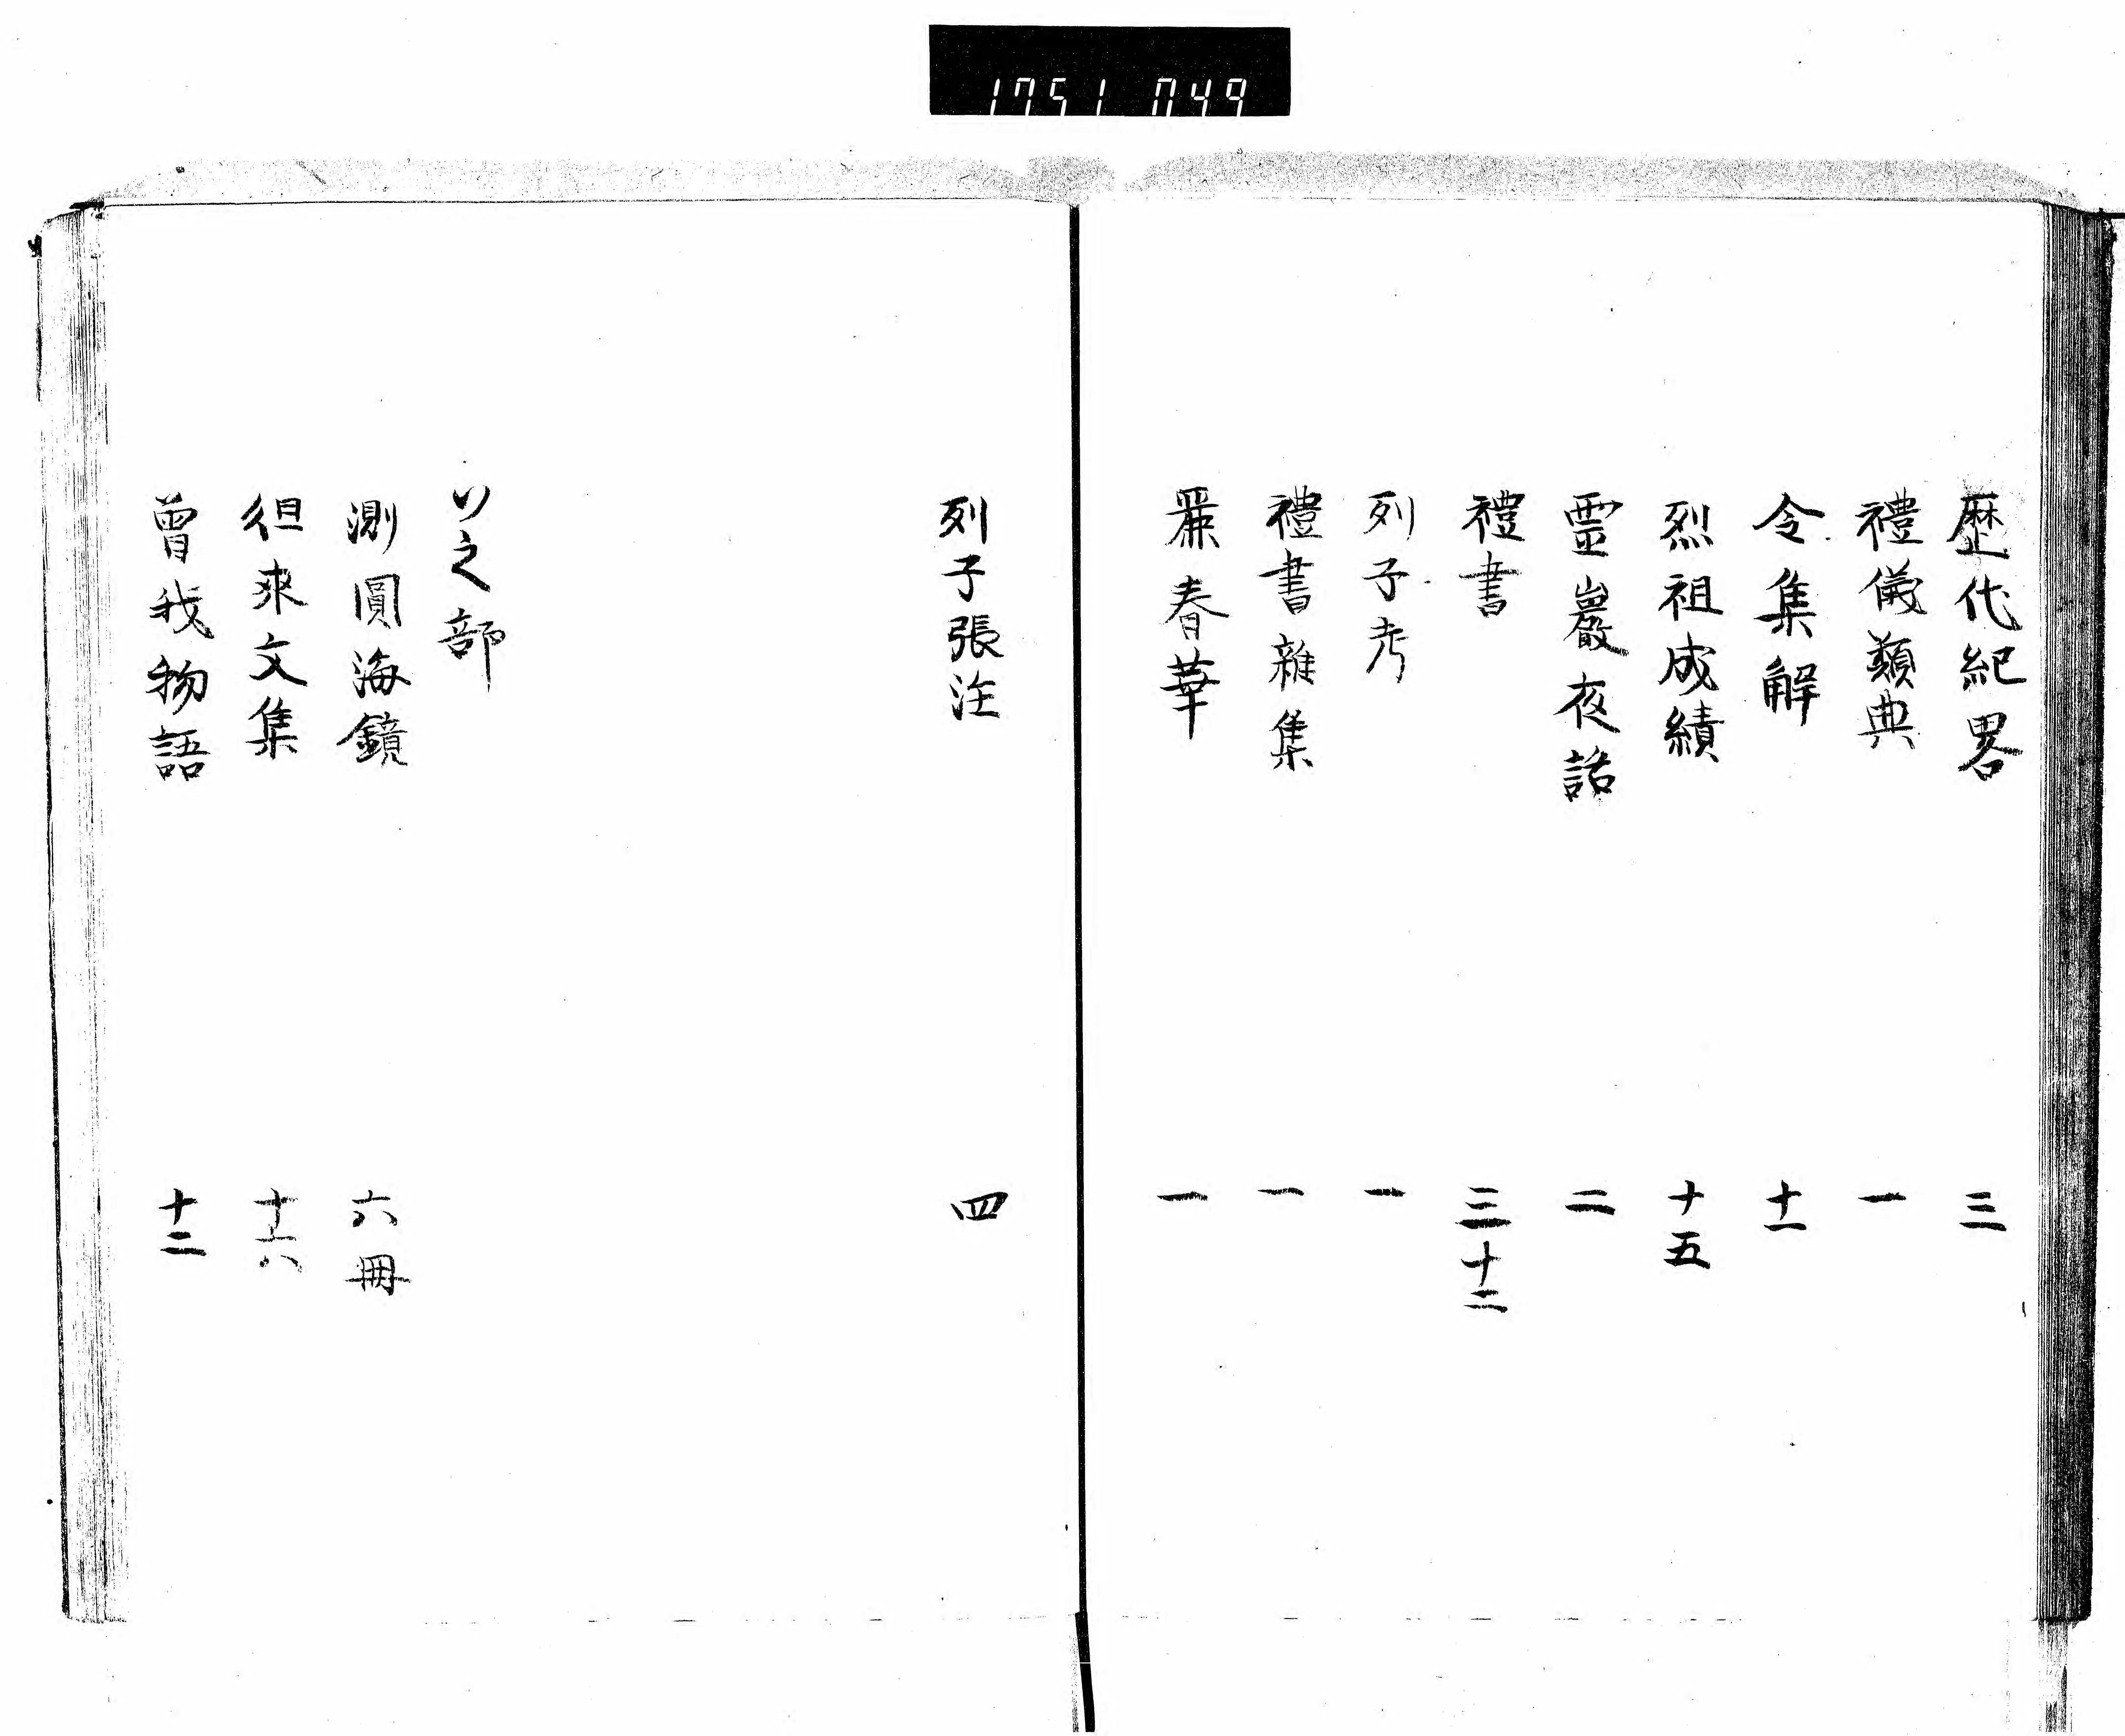 1751 049
歴代紀畧 三
禮儀類典 一
令集解 十一
烈祖成績 十五
靈巖夜話 二
禮書 三十二
列子考 一
禮書雜集 一
麗春華 一
列子張注 四
ソ之部
測圓海鏡 六冊
徂來文集 十六
曾我物語 十二